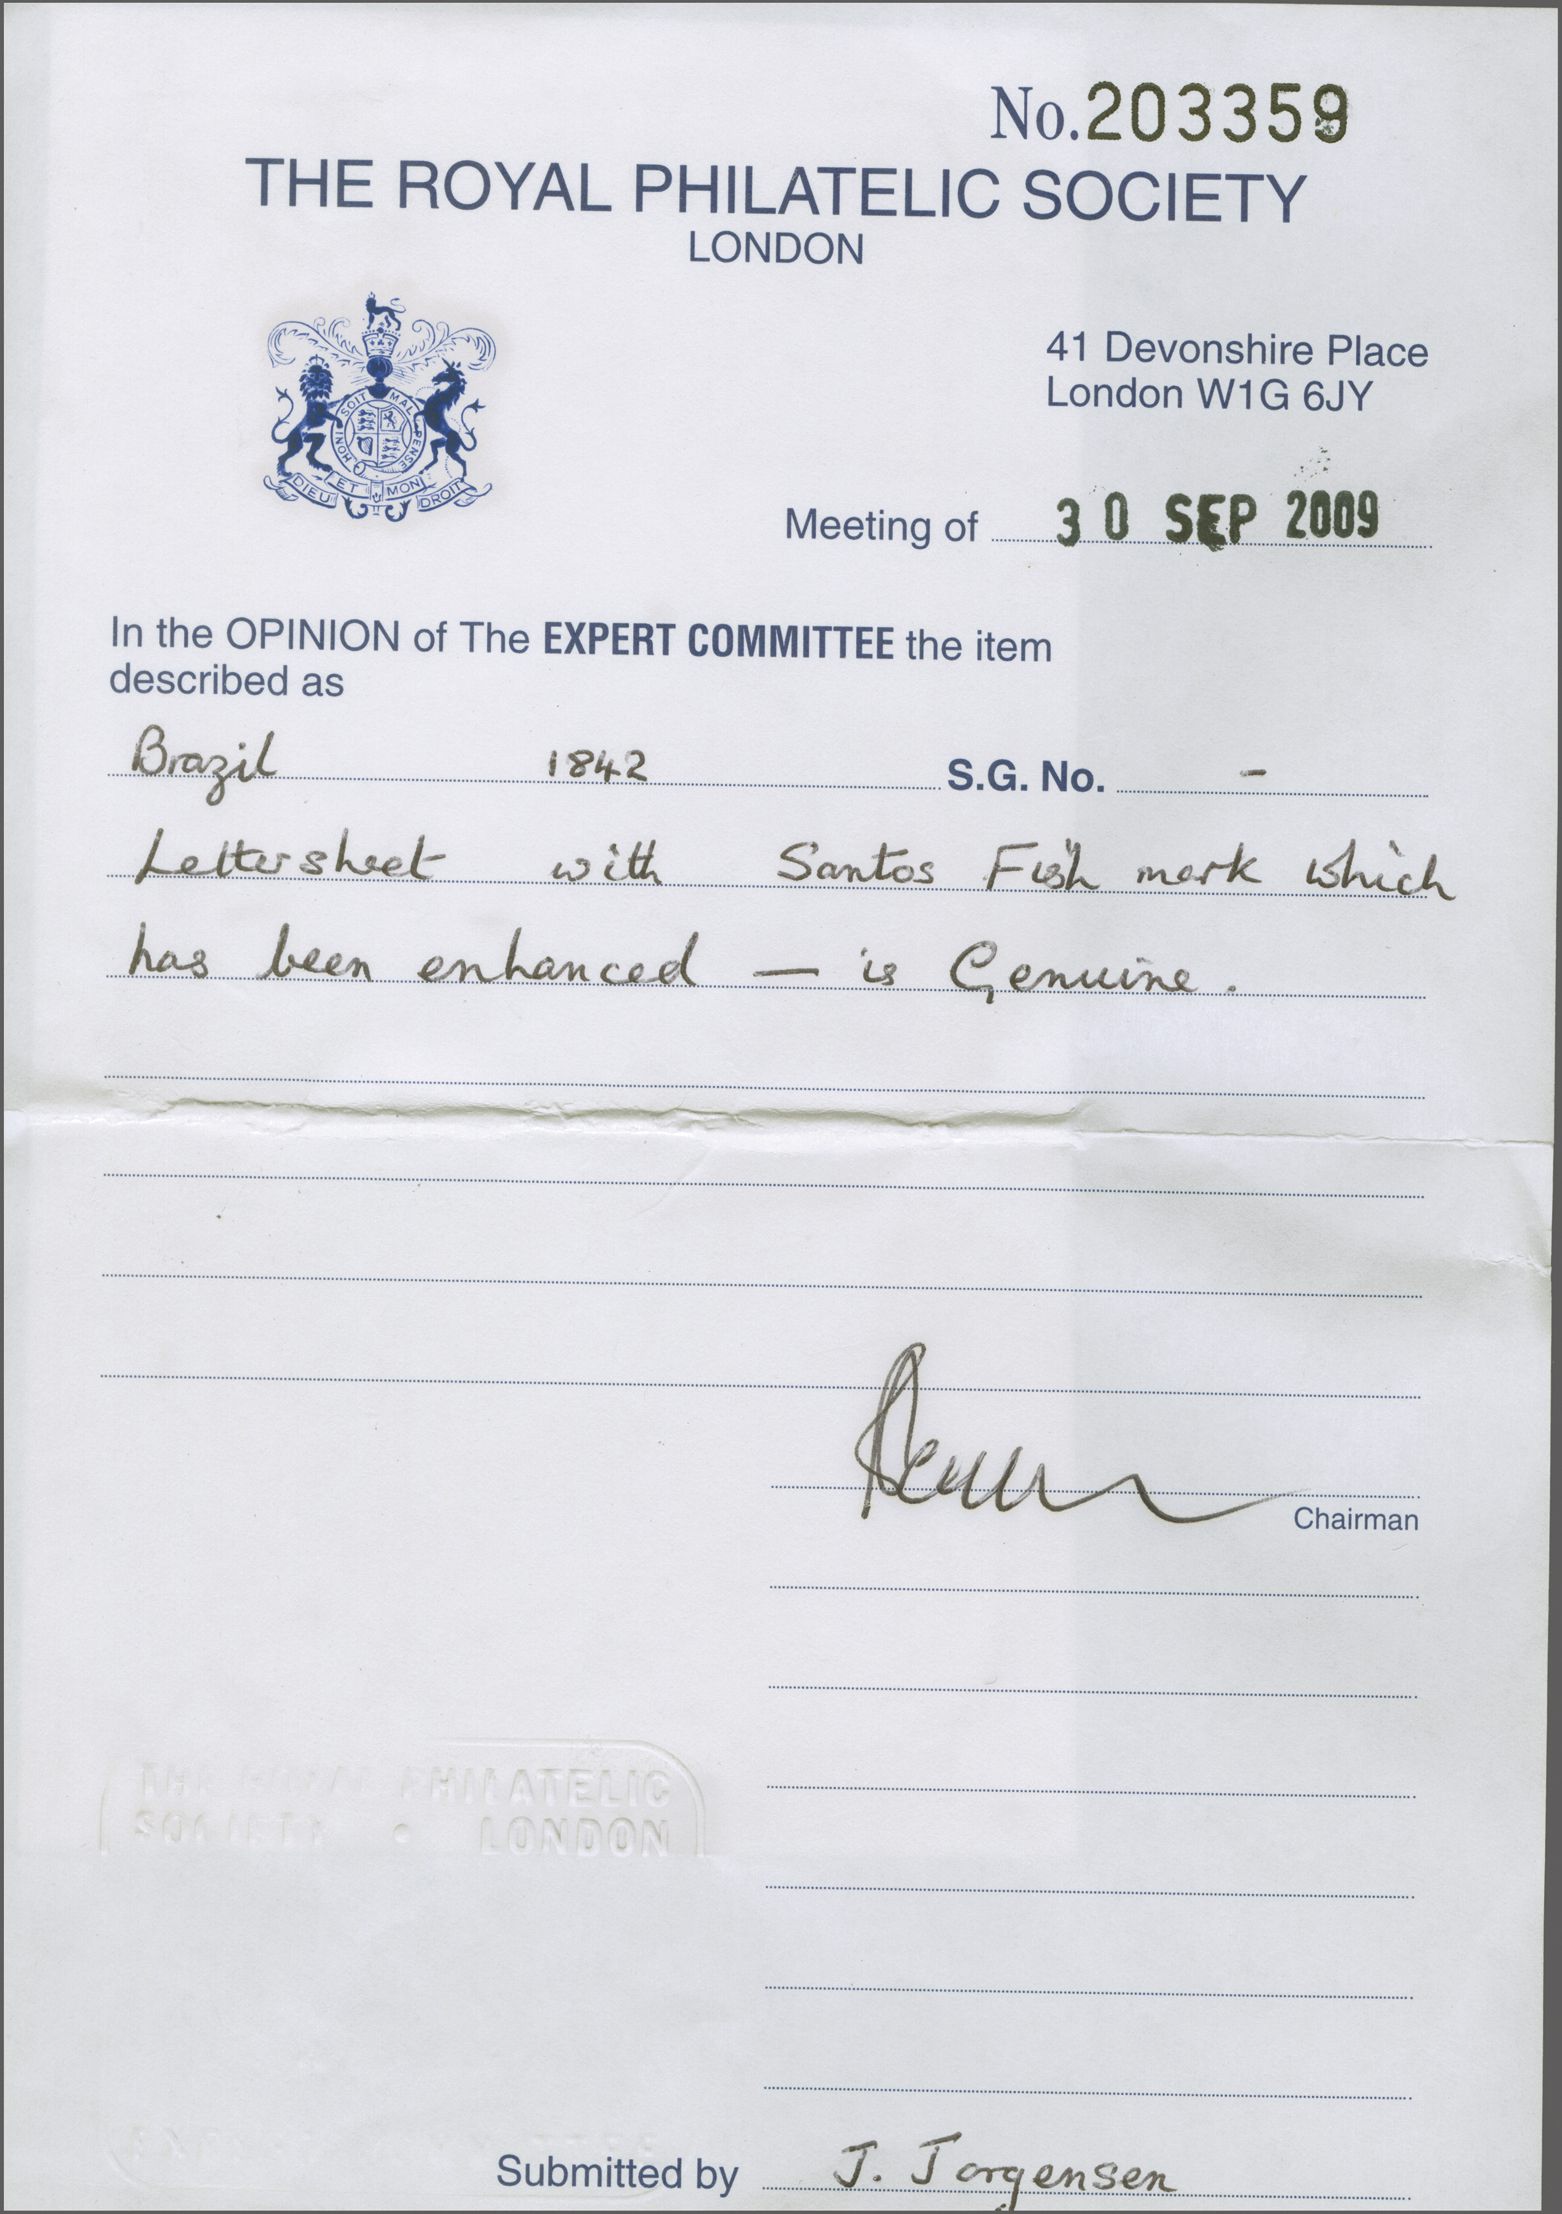 No. 203359
THE ROYAL PHILATELIC SOCIETY
LONDON
HONI SOIT MAL PENSE
DIEU ET MON DROIT
41 Devonshire Place
London W1G 6JY
Meeting of 30 SEP 2009
In the OPINION of The EXPERT COMMITTEE the item
described as
Brazil 1842 S.G. No. -
Lettersheet with Santos Fish mark which
has been enhanced — is Genuine.
Chairman
THE ROYAL PHILATELIC
SOCIETY • LONDON
Submitted by J. Jorgensen